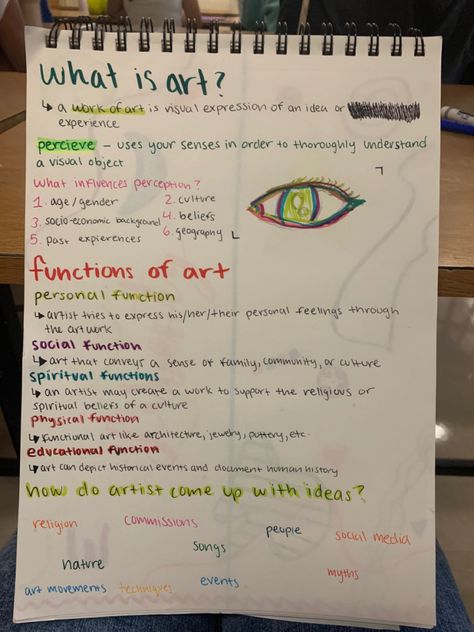 what is art?
↳ a work of art is visual expression of an idea or
experience
percieve – uses your senses in order to thoroughly understand
a visual object
what influences perception?
1. age/gender 2. culture
3. socio-economic background 4. beliefs
5. past expierences 6. geography
functions of art
personal function
↳ artist tries to express his/her/their personal feelings through
the art work
social function
↳ art that conveys a sense of family, community, or culture
spiritual functions
↳ an artist may create a work to support the religious or
spiritual beliefs of a culture
physical function
↳ functional art like architecture, jewelry, pottery, etc.
educational function
↳ art can depict historical events and document human history
how do artist come up with ideas?
religion commissions people social media
songs
nature myths
art movements techniques events